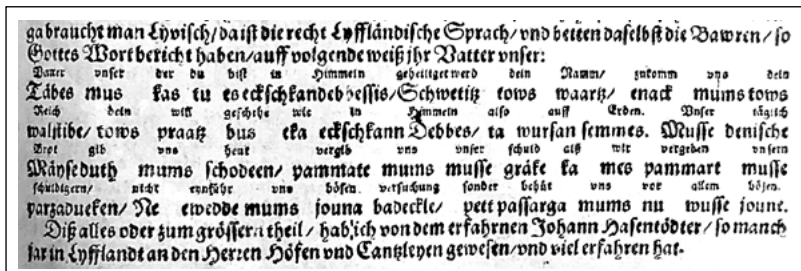 gebraucht man Lyvisch/ da ist die recht Lyffländische Sprach/ vnd betten daselbst die Bawren/ so
Gottes Wort bericht haben/ auff volgende weiß jhr Vatter vnser:
Vatter vnser der du bist in Himmeln geheiliget werd dein Namm/ zukomm vns dein
Täbes mus kas tu es eckschkan debbessis/ Schwetitz tows waartz/ enack mums tows
Reich dein will geschehe wie in Himmeln also auff Erden. Vnser täglich
walstibe/ tows praatz bus eka eckschkann Debbes/ ta wursan semmes. Musse denische
Brot gib vns heut vergib vns vnser schuld alß wir vergeben vnsern
Mäyse duth mums schodeen/ pammate mums musse gräke ka mes pammart musse
schuldigern/ nicht eynführ vns bösen. versuchung sonder behüt vns vor allem bösen.
parzadueken/ Ne ewedde mums jouna badeckle/ pett passarga mums nu wusse joune.
Diß alles oder zum grössern theil/ hab ich von dem erfahrnen Johann Hasentödter/ so manch
jar in Lyfflandt an den Herren Höfen vnd Cantzleyen gewesen/ vnd viel erfahren hat.